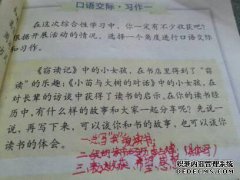 口语交际·习作一
在这次综合性学习中，你一定有不少收获吧？
根据开展活动的情况，选择一个角度进行口语交际
和习作。
《窃读记》中的小女孩，在书店里得到了“窃
读”的乐趣；《小苗与大树的对话》中的小女孩，在
对长辈的访谈中获得了读书的启示，在你的读书经
历中，有什么样的故事和大家一起分享呢？先说一
说，再写下来，可以谈你和书的故事，也可以谈你
读书的体会。